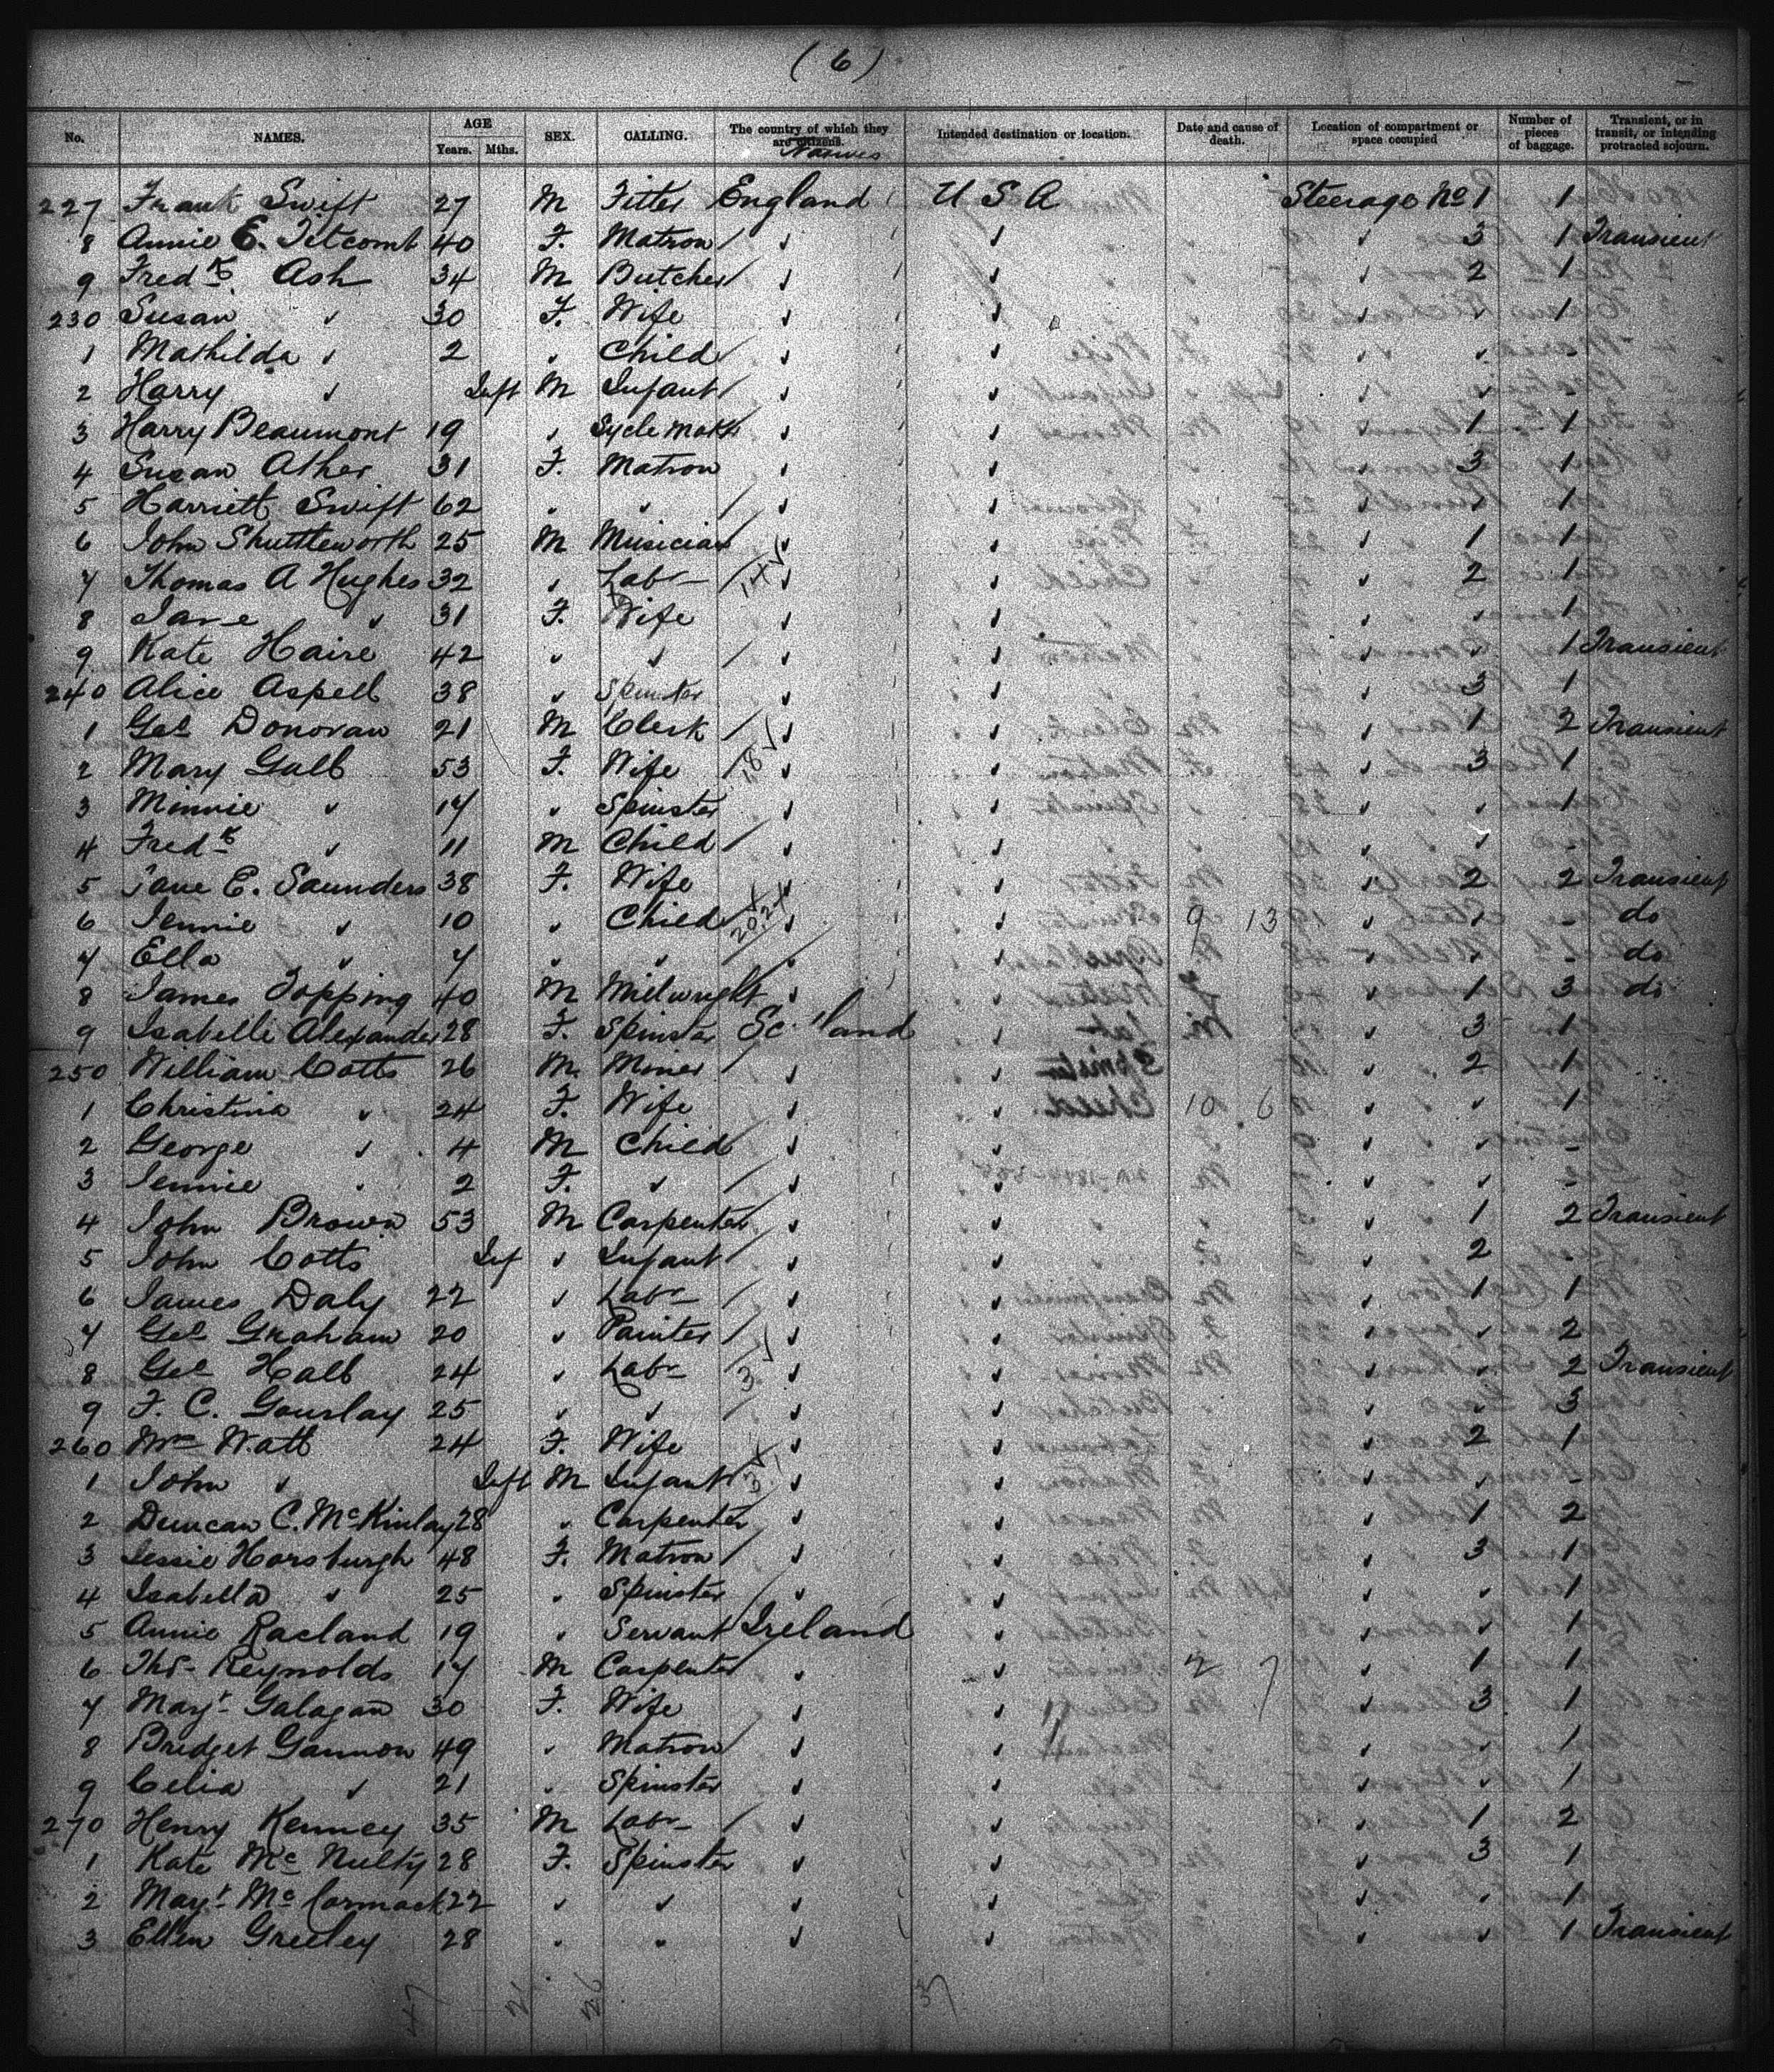 ( 6 )
No. NAMES. AGE Years. Mths. SEX. CALLING. The country of which they are citizens. Natives Intended destination or location. Date and cause of death. Location of compartment or space occupied Number of pieces of baggage. Transient, or in transit, or intending protracted sojourn.
227 Frank Swift 27 M Fitter England U S A Steerage No 1 1
8 Annie E. Titcomb 40 F. Matron ✓ ✓ ✓ 3 1 Transient
9 Fredk Ash 34 M Butcher ✓ ✓ ✓ 2 1
230 Susan ✓ 30 F. Wife ✓ ✓ ✓ ✓ 1
1 Mathilda ✓ 2 ✓ Child ✓ ✓ ✓ ✓ -
2 Harry ✓ Inft M Infant ✓ ✓ ✓ ✓ -
3 Harry Beaumont 19 ✓ Sycle Makr ✓ ✓ ✓ 1 1
4 Susan Ather 31 F. Matron ✓ ✓ ✓ 3 1
5 Harriett Swift 62 ✓ ✓ ✓ ✓ ✓ ✓ 1
6 John Shuttleworth 25 M Musician ✓ ✓ ✓ 1 1
7 Thomas A Hughes 32 ✓ Labr ✓ ✓ ✓ 2 1
8 Jane ✓ 31 F. Wife ✓ ✓ ✓ ✓ 1
9 Kate Haire 42 ✓ ✓ ✓ ✓ ✓ ✓ 1 Transient
240 Alice Aspell 38 ✓ Spinster ✓ ✓ ✓ 3 1
1 Geo Donovan 21 M Clerk ✓ ✓ ✓ 1 2 Transient
2 Mary Gall 53 F. Wife ✓ ✓ ✓ 3 1
3 Minnie ✓ 17 ✓ Spinster ✓ ✓ ✓ ✓ 1
4 Fredk ✓ 11 M Child ✓ ✓ ✓ ✓ -
5 Jane E. Saunders 38 F. Wife ✓ ✓ ✓ 2 2 Transient
6 Jennie ✓ 10 ✓ Child ✓ ✓ 9 13 ✓ ✓ - do
7 Ella ✓ 7 ✓ ✓ ✓ ✓ ✓ ✓ - do
8 James Topping 40 M Milwright ✓ ✓ ✓ 1 3 do
9 Isabelle Alexander 28 F. Spinster Scotland ✓ ✓ 3 1
250 William Cotts 26 M. Miner ✓ ✓ ✓ 2 1
1 Christina ✓ 24 F. Wife ✓ ✓ 10 6 ✓ ✓ 1
2 George ✓ 4 M Child ✓ ✓ ✓ ✓ -
3 Jennie ✓ 2 F. ✓ ✓ ✓ ✓ ✓ -
4 John Brown 53 M Carpenter ✓ ✓ ✓ 1 2 Transient
5 John Cotts Inf ✓ Infant ✓ ✓ ✓ 2 -
6 James Daly 22 ✓ Labr ✓ ✓ ✓ 1 1
7 Geo Graham 20 ✓ Painter ✓ ✓ ✓ ✓ 2
8 Geo Hall 24 ✓ Labr ✓ ✓ ✓ ✓ 2 Transient
9 F. C. Gourlay 25 ✓ ✓ ✓ ✓ ✓ ✓ 3
260 Mrs Watt 24 F. Wife ✓ ✓ ✓ 2 1
1 John ✓ Inft M Infant ✓ ✓ ✓ ✓ -
2 Duncan C. McKinlay 28 ✓ Carpenter ✓ ✓ ✓ 1 2
3 Jessie Horsburgh 48 F. Matron ✓ ✓ ✓ 3 1
4 Isabella ✓ 25 ✓ Spinster ✓ ✓ ✓ ✓ 1
5 Annie Racland 19 ✓ Servant Ireland ✓ ✓ ✓ 1
6 Thos Reynolds 17 M Carpenter ✓ ✓ 2 7 ✓ 1 1
7 Mayt Galagan 30 F. Wife ✓ ✓ ✓ 3 1
8 Bridget Gannon 49 ✓ Matron ✓ ✓ ✓ ✓ 1
9 Celia ✓ 21 ✓ Spinster ✓ ✓ ✓ ✓ 1
270 Henry Kenney 35 M Labr ✓ ✓ ✓ 1 2
1 Kate Mc Nulty 28 F. Spinster ✓ ✓ ✓ 3 1
2 Mayt Mc Cormack 22 ✓ ✓ ✓ ✓ ✓ ✓ 1
3 Ellen Greeley 28 ✓ ✓ ✓ ✓ ✓ ✓ 1 Transient